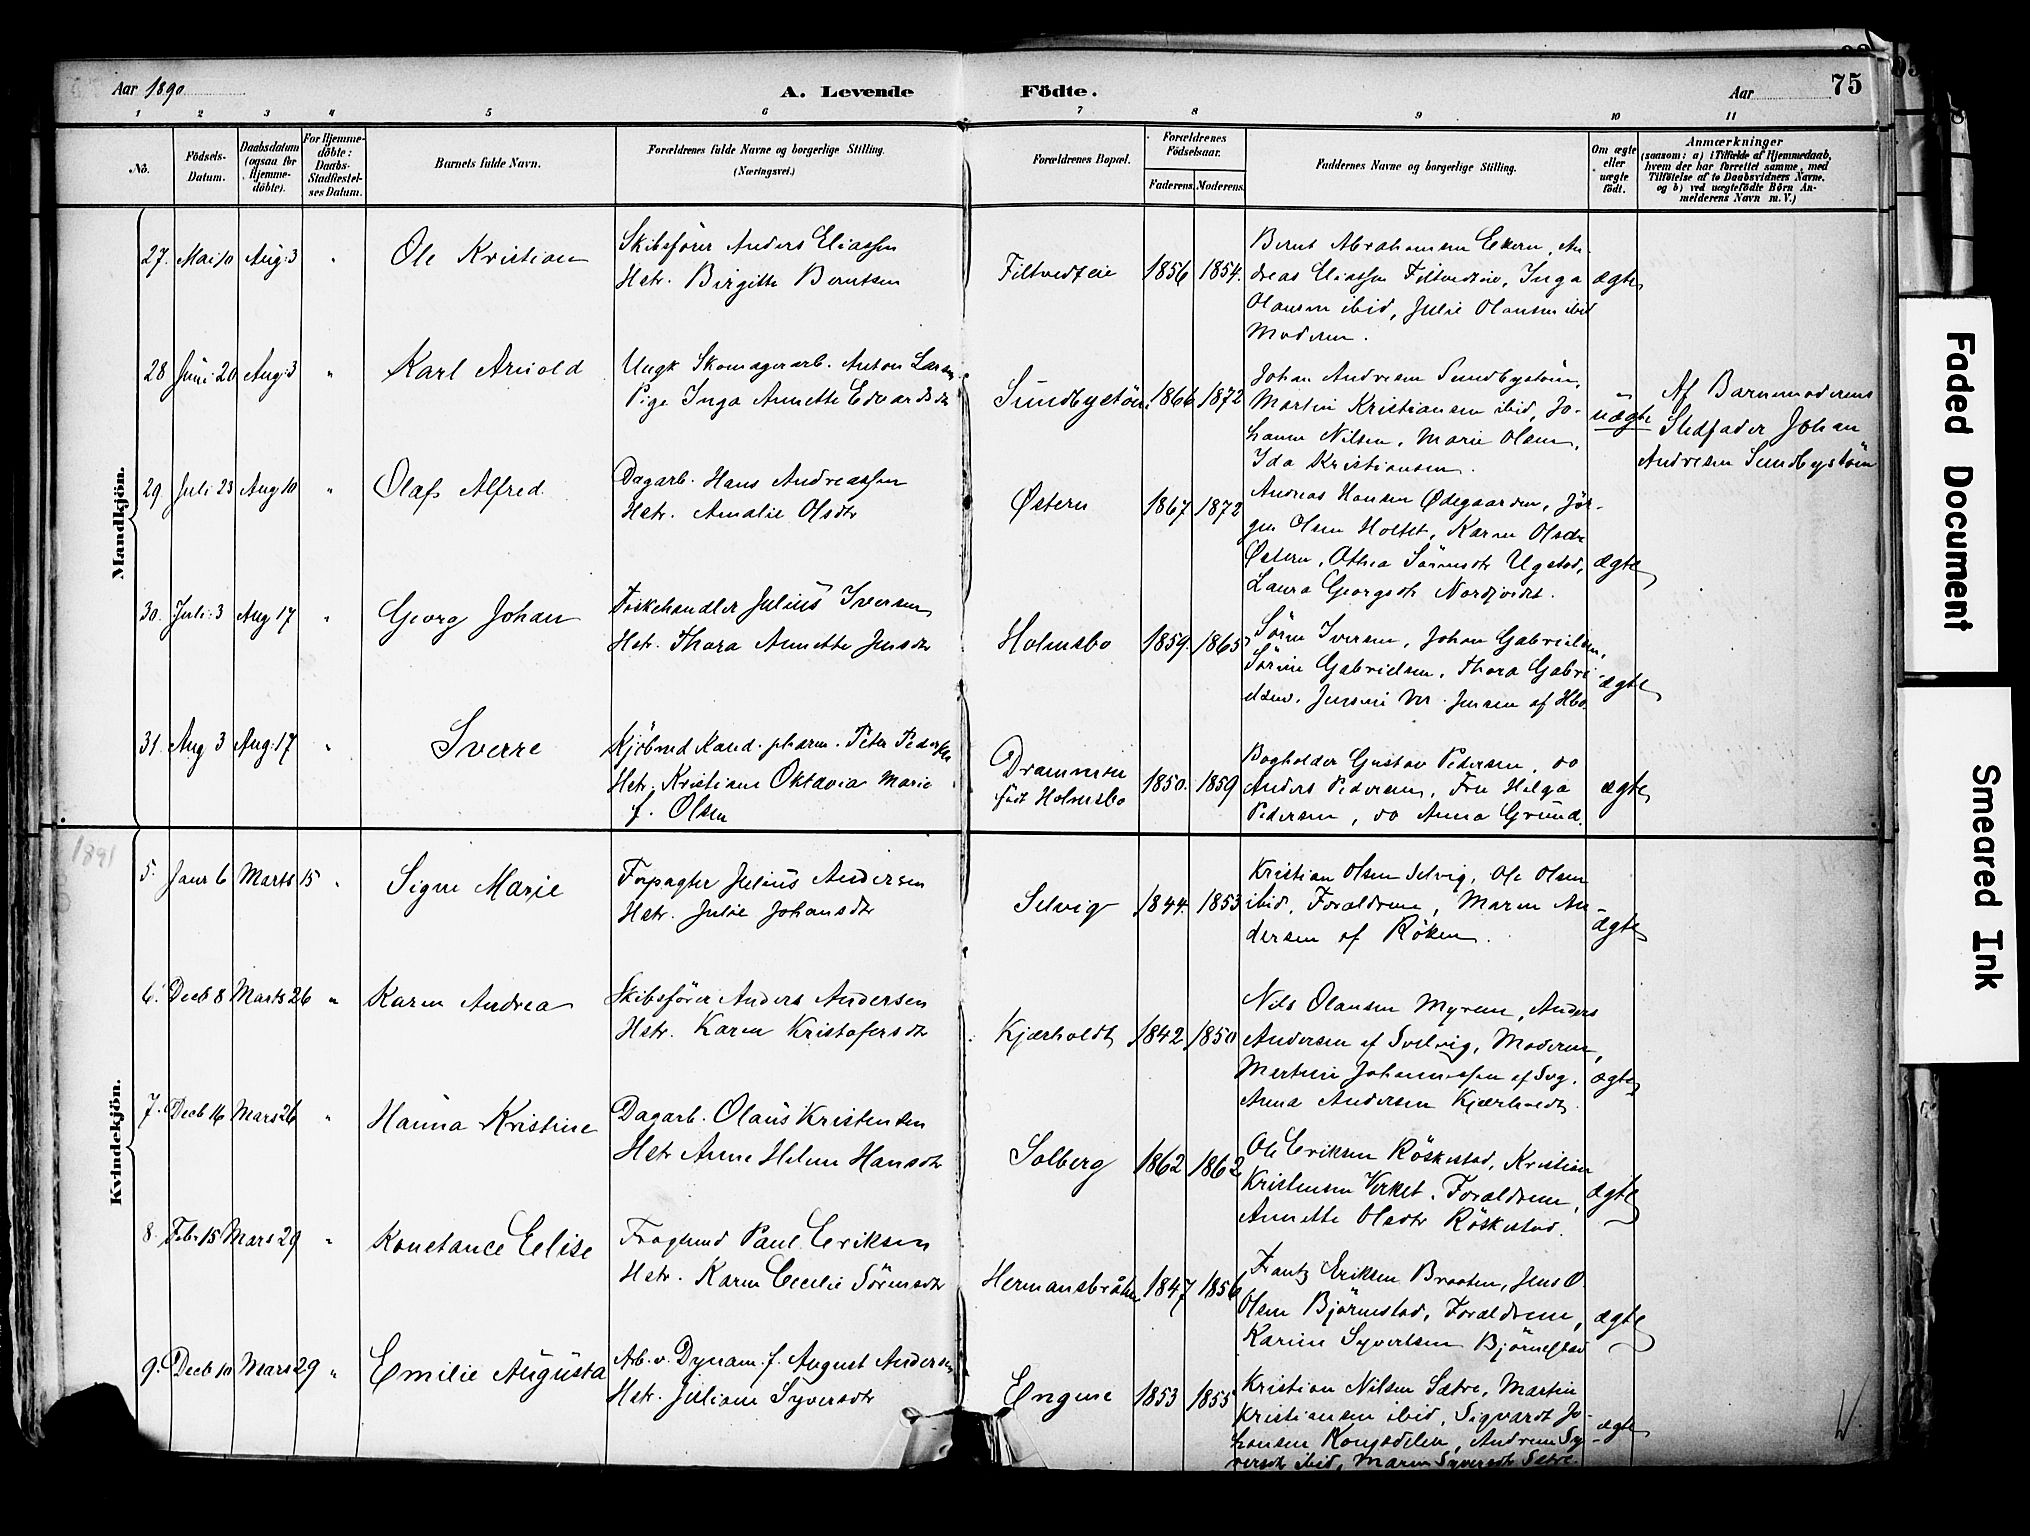 Aar 1890
A. Levende
Födte.
Aar
75
1 2 3 4 5 6 7 8 9 10 11
No.
Födsels-Datum.
Daabsdatum (ogsaa for Hjemme-döbte).
For Hjemme-döbte: Daabs-Stadfæstel-ses Datum.
Barnets fulde Navn.
Forældrenes fulde Navne og borgerlige Stilling.
(Næringsvei.)
Forældrenes Bopæl.
Forældrenes Födselsaar.
Faderens. Moderens.
Faddernes Navne og borgerlige Stilling.
Om ægte eller uægte födt.
Anmærkninger
(saasom: a) i Tilfælde af Hjemmedaab,
hvem der har forrettet samme, med
Tilföielse af to Daabsvidners Navne,
og b) ved uægtefödte Börn An-
melderens Navn m. V.)
Mandkjön.
27. Mai 10 Aug: 3 " Ole Kristian
Skibsfører Anders Eliassen
Hstr. Birgitte Berntsen
Filtvedteie 1856 1854.
Bernt Abrahamsen Ekern, An-
dreas Eliassen Filtvedteie, Inga
Olausen ibid, Julie Olausen ibid
Moderen.
ægte
28 Juni 20 Aug: 3 " Karl Arnold
Ungk Skomagerarb. Anton Larsen
Pige Inga Annette Edvardsdtr
Sundbystöen 1866 1872
Johan Andresen Sundbystöen,
Martin Kristiansen ibid, Jo-
hanne Nilsen, Marie Olsen,
Ida Kristiansen.
uægte
Af Barnemoderens
Stedfader Johan
Andresen Sundbystöen
29. Juli 23 Aug 10 " Olaf Alfred.
Dagarb. Hans Andreassen
Hstr. Amalie Olsdtr
Østern 1867 1872
Andreas Hansen Ødegaarden, Jør-
gen Olsen Holtet, Karen Olsdtr
Østern, Othea Sørensdtr Ugstad,
Laura Georgsdtr Nordjordet.
ægte
30. Juli: 3 Aug 17 " Georg Johan
Fiskehandler Julius Iversen
Hstr. Thora Annette Jensdtr
Holmsbo 1859. 1865
Søren Iversen, Johan Gabrielsen,
Sørine Gabrielsen, Thora Gabri-
elsen, Jensine M. Jensen af Hbo.
ægte
31. Aug 3 Aug: 17 " Sverre
Kjöbmd Kand. pharm. Peter Pedersen
Hstr. Kristiane Oktavia Marie
f. Olsen
Drammen
født Holmsbo 1850. 1859
Bogholder Gustav Pedersen, do
Anders Pedersen, Fru Helga
Pedersen, do Anna Gründ.
ægte
1891
Kvindekjön.
5. Janr 6 Marts 15 " Signe Marie
Forpagter Julius Andersen
Hstr. Julie Johansdtr
Selvig 1844. 1853
Kristian Olsen Selvig, Ole Olsen
ibid, Forældrene, Maren An-
dersen af Röken.
ægte
6. Decb 8 Marts 26 " Karen Andrea
Skibsfører Anders Andersen
Hstr. Karen Kristofersdtr
Kjærholdt 1842 1850
Nils Olausen Myrene, Anders
Andersen af Svelvig, Moderen,
Martine Johannessen af Svg.
Anna Andersen Kjærholdt
ægte
7. Decb 16 Mars 26 " Hanna Kristine
Dagarb. Olaus Kristensen
Hstr Anne Helene Hansdtr
Solberg 1862 1862
Ole Eriksen Röskestad, Kristian
Kristensen Verket, Forældrene,
Annette Olsdtr Röskestad.
ægte
8. Febr 15 Mars 29 " Konstance Eelise
Fragtmd Paul Eriksen
Hstr. Karen Cecelie Sörensdtr
Hermansbråten 1847 1856
Frantz Eriksen Braaten, Jens O.
Olsen Björnestad, Forældrene,
Karine Syvertsen Björnestad
ægte
9. Decb 10 Mars 29 " Emilie Augusta
Arb. v. Dynam. f. August Andersen
Hstr. Juliane Syversdtr
Engene 1853 1855
Kristian Nilsen Sætre, Martin
Kristiansen ibid, Sigvardt Jo-
hansen Kongsdelen, Andrine Sy-
versdtr ibid, Maren Syversdtr Sætre
ægte
Faded Document
Smeared Ink